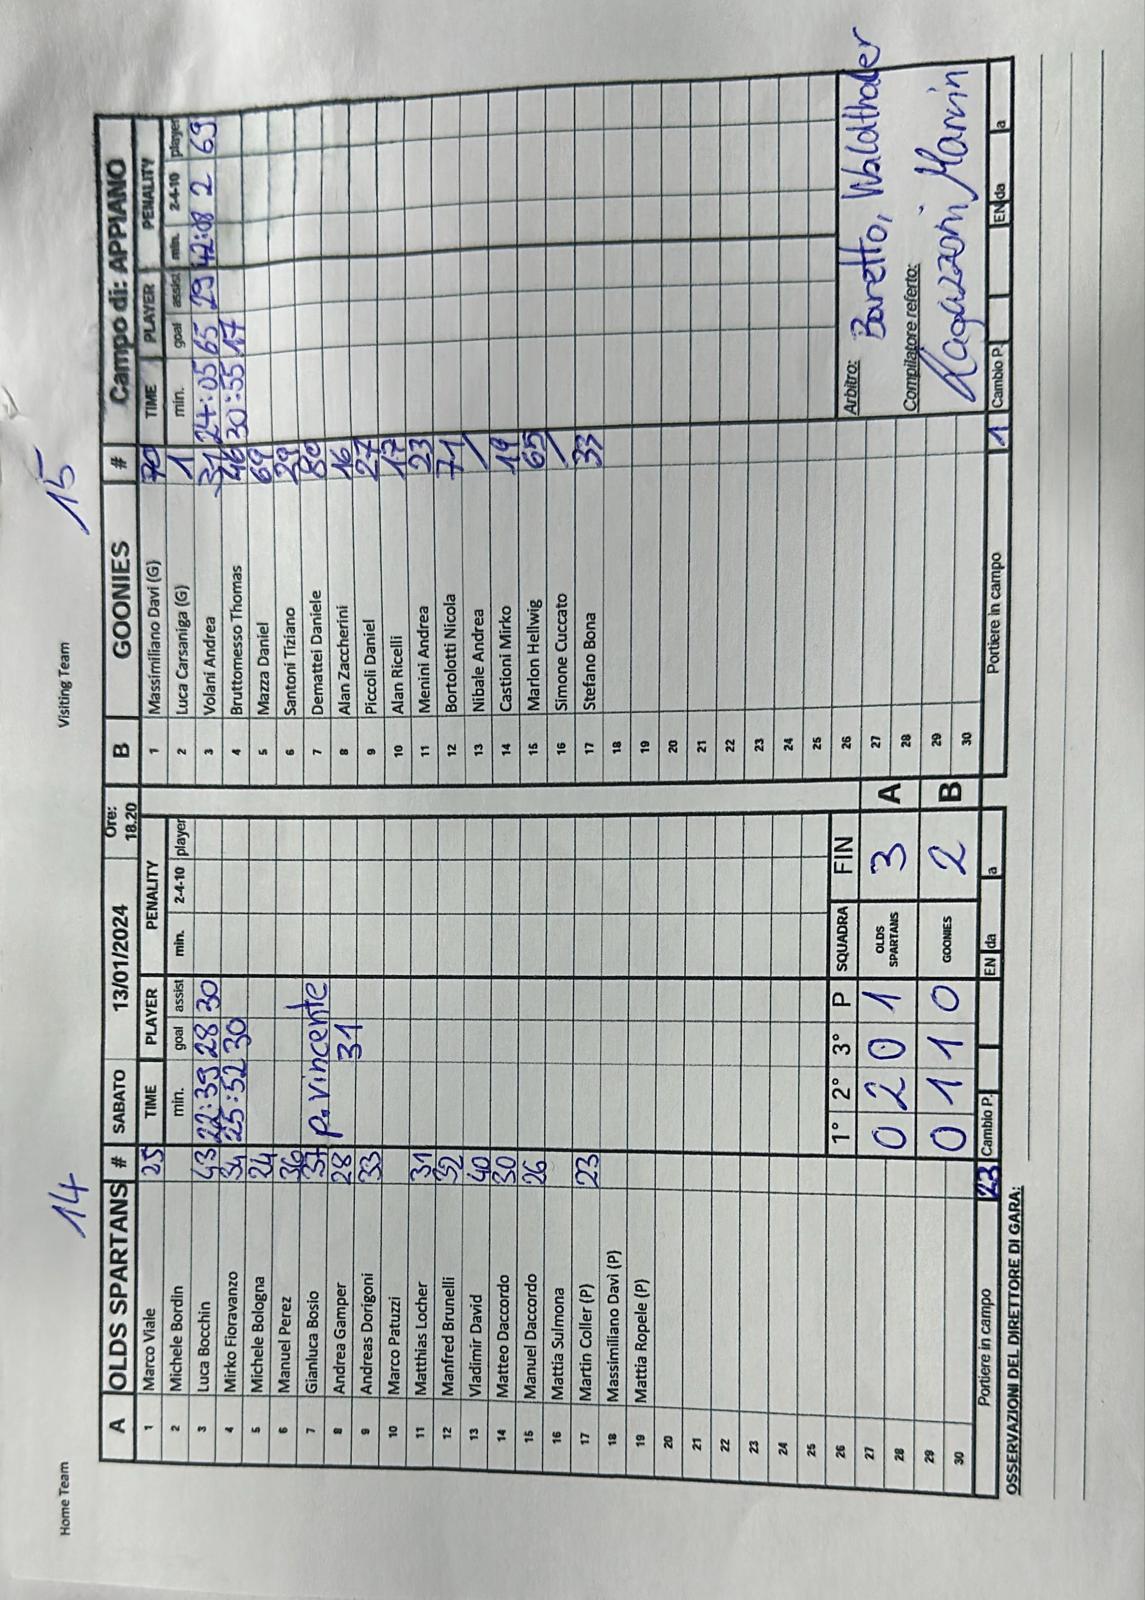 Home Team 14 Visiting Team 15
A OLDS SPARTANS # SABATO 13/01/2024 Ore: 18.20 B GOONIES # Campo di: APPIANO
TIME PLAYER PENALITY TIME PLAYER PENALITY
min. goal assist min. 2-4-10 player min. goal assist min. 2-4-10 player
1 Marco Viale 25 1 Massimiliano Davi (G) 70
2 Michele Bordin 2 Luca Carsaniga (G) 1
3 Luca Bocchin 43 22:39 28 30 3 Volani Andrea 31 24:05 65 29 42:08 2 69
4 Mirko Fioravanzo 34 25:52 30 4 Bruttomesso Thomas 46 30:55 17
5 Michele Bologna 24 5 Mazza Daniel 69
6 Manuel Perez 36 6 Santoni Tiziano 29
7 Gianluca Bosio 37 p. vincente 7 Demattei Daniele 80
8 Andrea Gamper 28 31 8 Alan Zaccherini 16
9 Andreas Dorigoni 33 9 Piccoli Daniel 27
10 Marco Patuzzi 10 Alan Ricelli 17
11 Matthias Locher 31 11 Menini Andrea 23
12 Manfred Brunelli 52 12 Bortolotti Nicola 71
13 Vladimir David 40 13 Nibale Andrea /
14 Matteo Daccordo 30 14 Castioni Mirko 19
15 Manuel Daccordo 26 15 Marlon Hellwig 65
16 Mattia Sulmona 16 Simone Cuccato /
17 Martin Coller (P) 23 17 Stefano Bona 33
18 Massimiliano Davi (P) 18
19 Mattia Ropele (P) 19
20 20
21 21
22 22
23 23
24 24
25 25
26 1° 2° 3° P SQUADRA FIN 26
27 0 2 0 1 OLDS SPARTANS 3 A 27 Arbitro: Baretto, Waldthaler
28 28
29 0 1 1 0 GOONIES 2 B 29 Compilatore referto: Ragazzoni Marvin
30 30
Portiere in campo 23 Cambio P. EN da a Portiere in campo 1 Cambio P. EN da a
OSSERVAZIONI DEL DIRETTORE DI GARA: